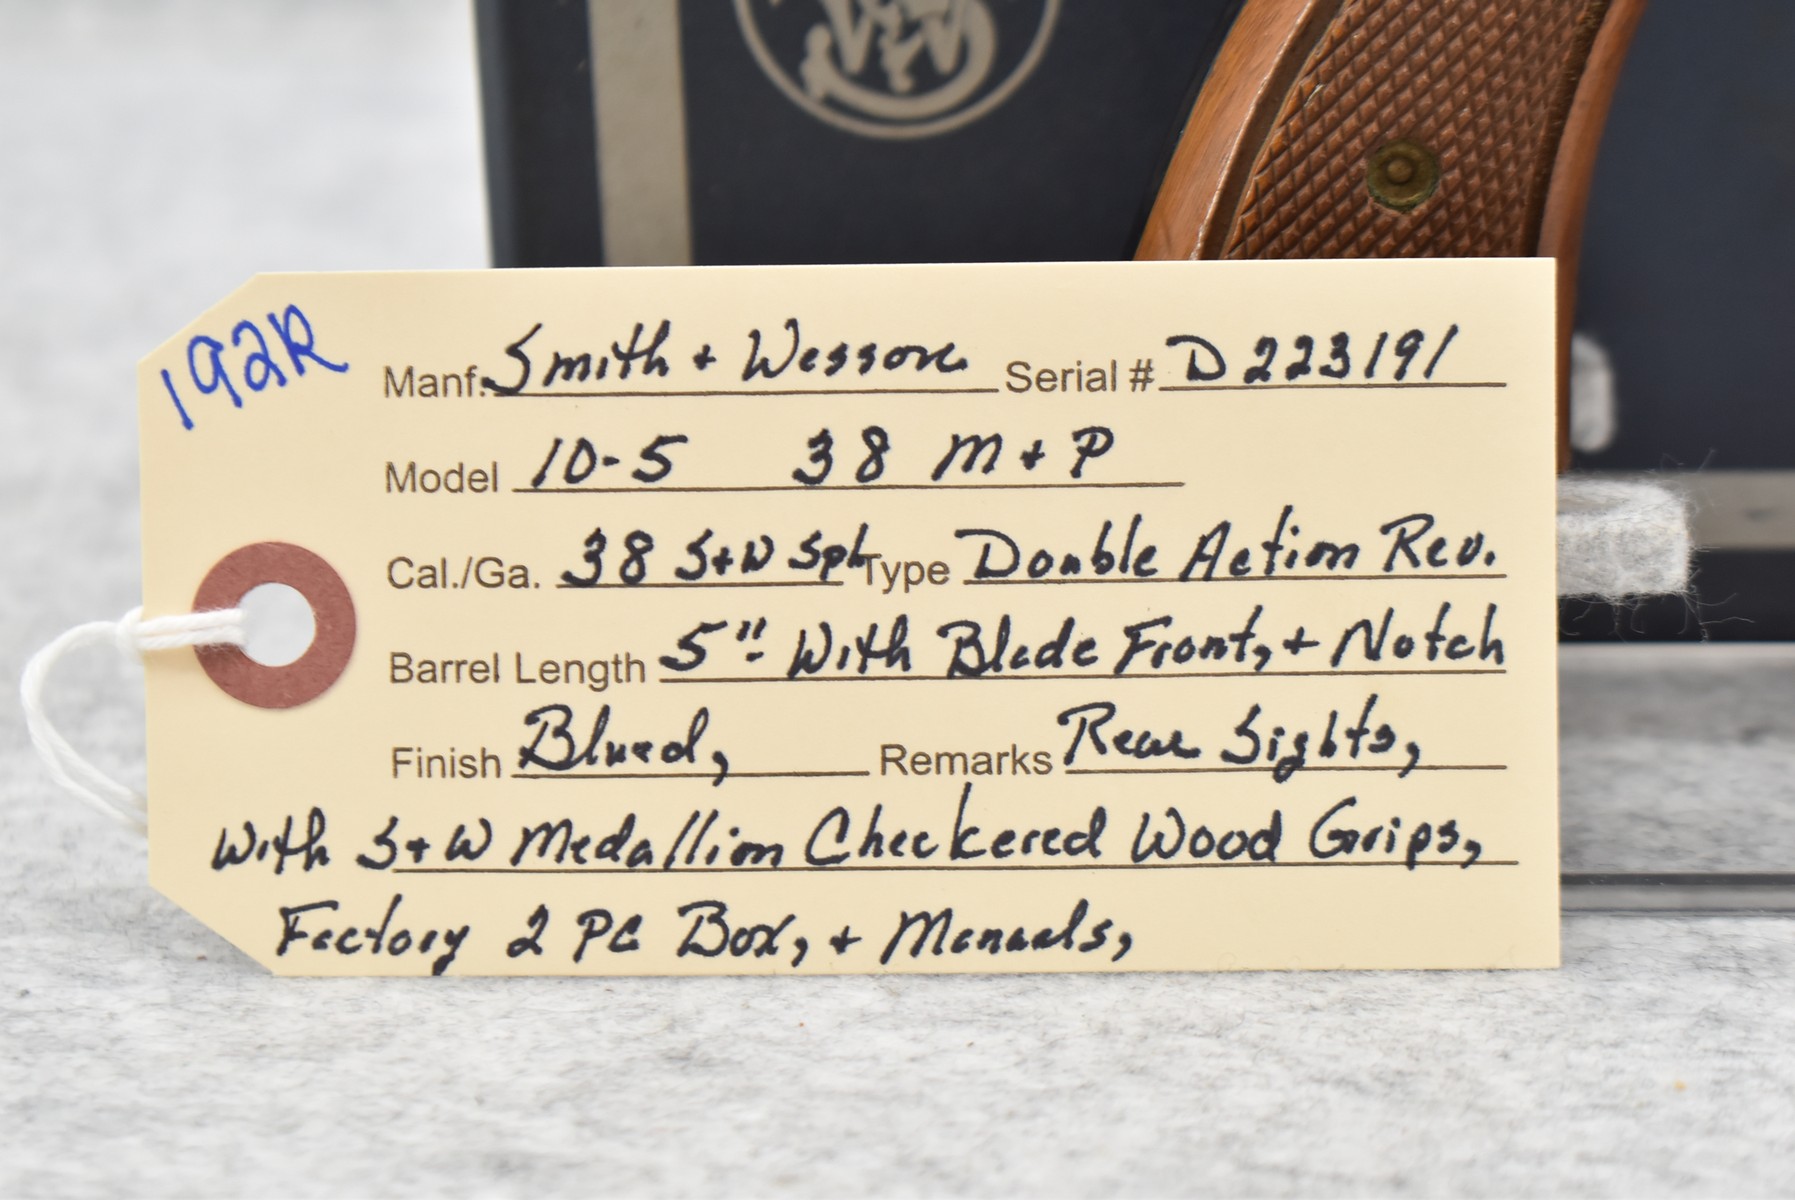 192R
Manf. Smith + Wesson Serial # D223191
Model 10-5 38 M+P
Cal./Ga. 38 S+W Spl Type Double Action Rev.
Barrel Length 5" With Blade Front, + Notch
Finish Blued, Remarks Rear Sights,
With S+W Medallion Checkered Wood Grips,
Factory 2 PC Box, + Manuals,